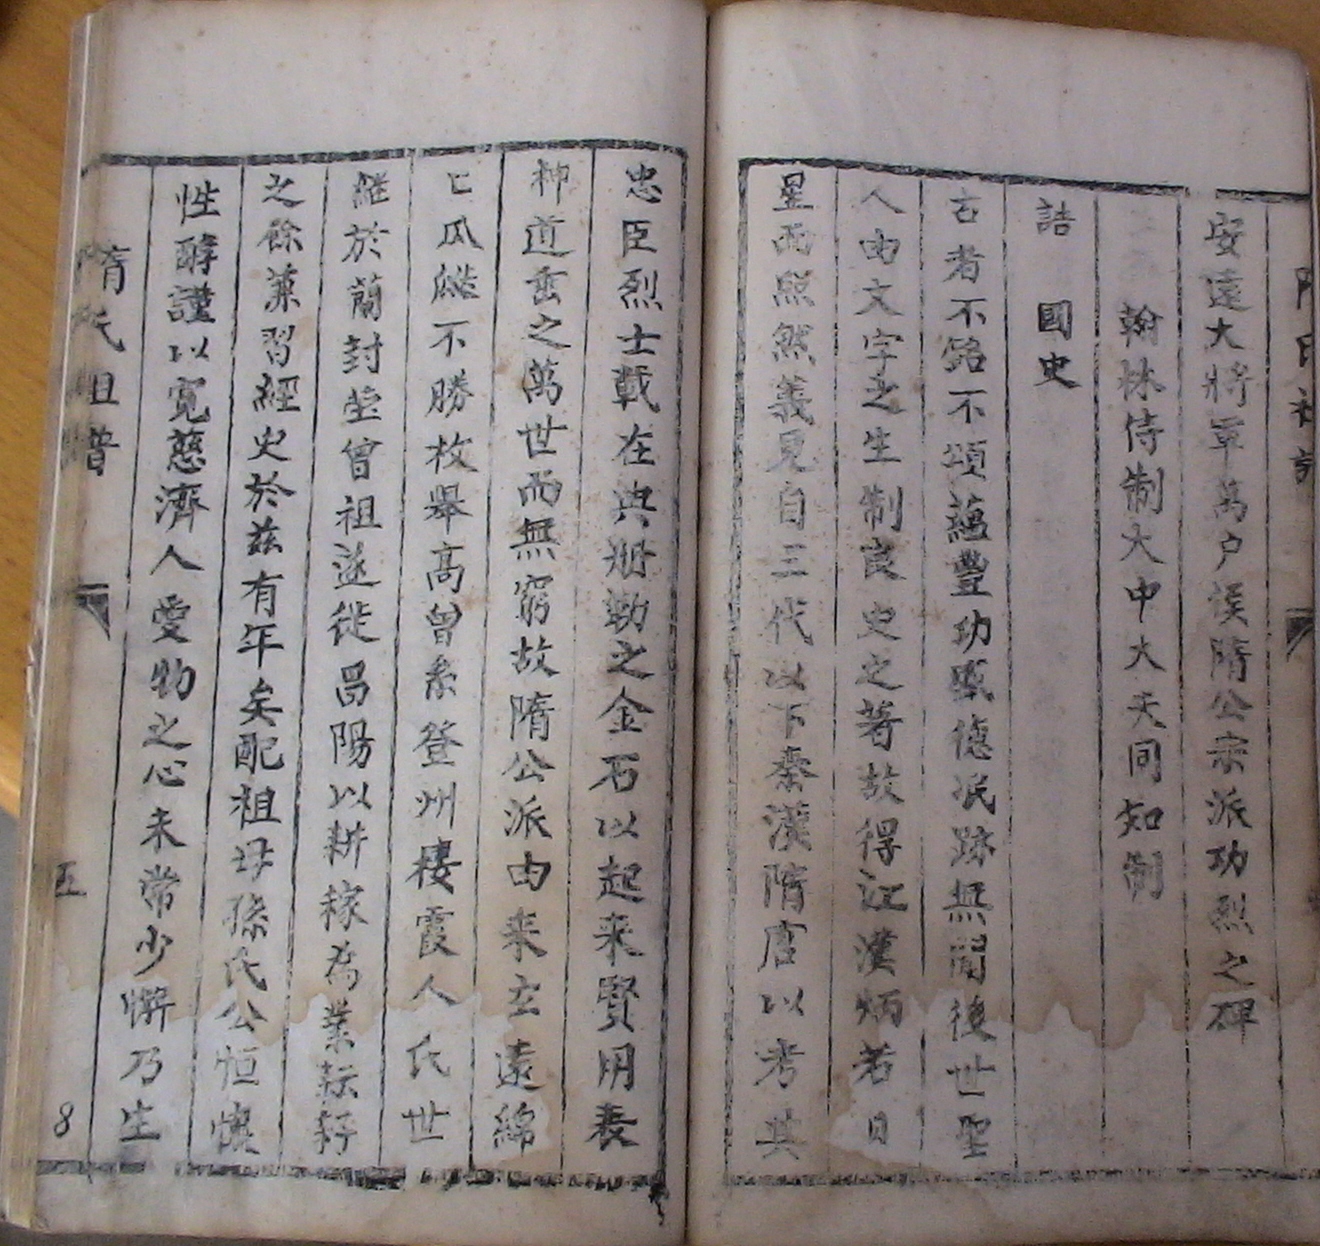 安遠大將軍萬户侯隋公宗派功烈之碑
翰林侍制大中大夫同知制
誥 國史
古者不銘不頌蘊豐功盛德泯跡無聞後世聖
人由文字之生制良史之著故得江漢炳若日
星而熙然義見自三代以下秦漢隋唐以考其
忠臣烈士載在典册勒之金石以起来賢用表
神道垂之萬世而無窮故隋公派由来玄遠綿
亡瓜瓞不勝枚舉高曾系登州棲霞人氏世
継於蘭封塋曾祖遂徙昌陽以耕稼為業耘耔
之餘兼習經史於兹有年矣配祖母孫氏公恒懷
性醇謹以寛慈濟人愛物之心未常少懈乃生
隋氏祖譜
五
8